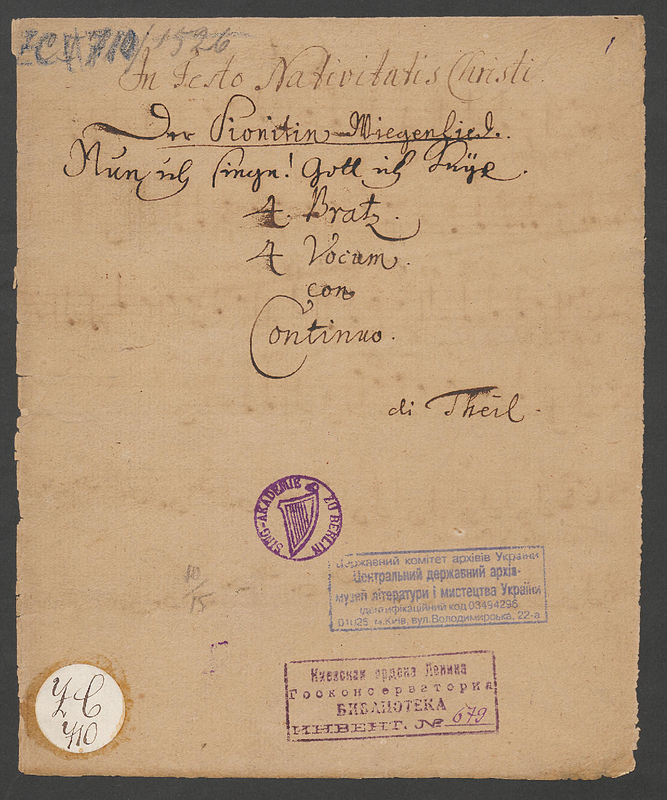 ZC 710/1526
1
In Festo Nativitatis Christi.
Der Sionitin Wiegenlied.
Nun ich singe! Gott ich
4. Bratz.
4 Vocum.
con
Continuo.
di Theil.
SING-AKADEMIE ZU BERLIN
10
15
Державний комітет архівів України
Центральний державний архів-
музей літератури і мистецтва України
ідентифікаційний код 03494296
01025 м.Київ, вул.Володимирська, 22-а
Киевская ордена Ленина
Госконсерватория
БИБЛИОТЕКА
ИНВЕНТ. № 679
ZC
710